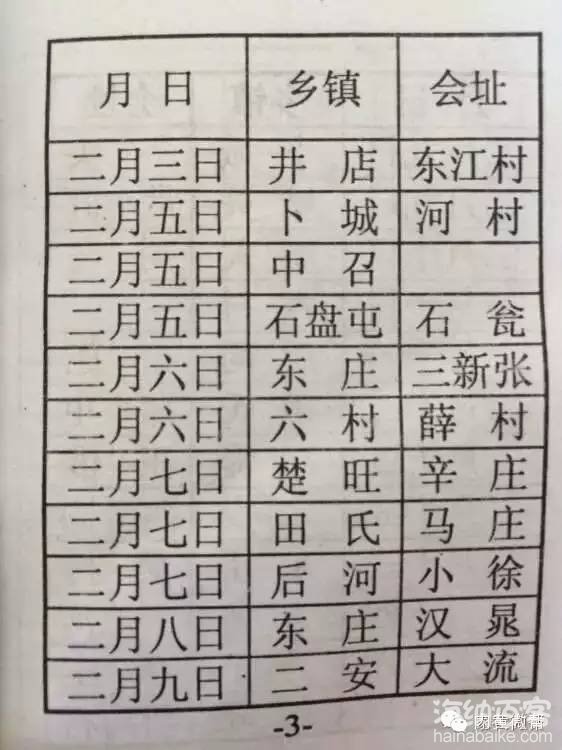 月 日 乡镇 会址
二月三日 井 店 东江村
二月五日 卜 城 河 村
二月五日 中 召
二月五日 石盘屯 石 瓮
二月六日 东 庄 三新张
二月六日 六 村 薛 村
二月七日 楚 旺 辛 庄
二月七日 田 氏 马 庄
二月七日 后 河 小 徐
二月八日 东 庄 汉 晁
二月九日 二 安 大 流
-3-
海纳百客
hainabaike.com